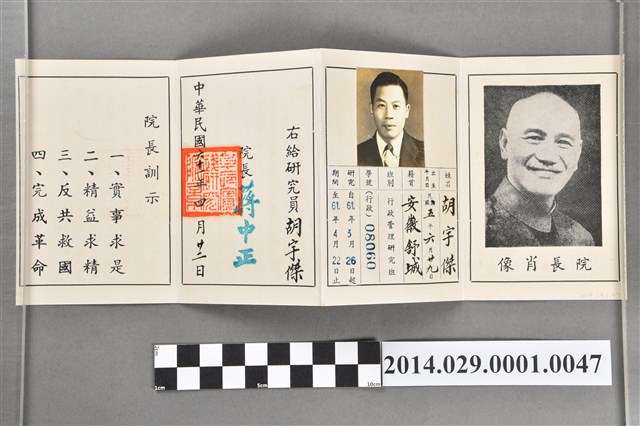 院長肖像
姓名 胡宇傑
出生年月日 五年六月廿九日
籍貫 安徽舒城
班別 行政管理研究班
學號 (行政) 08060
研究期間 自61年3月26日起
至61年4月22日止
右給研究員胡宇傑
院長 蔣中正
中華民國六十一年四月廿二日
院長訓示
一、實事求是
二、精益求精
三、反共救國
四、完成革命
2cm
1cm 5cm 10cm
2014.029.0001.0047